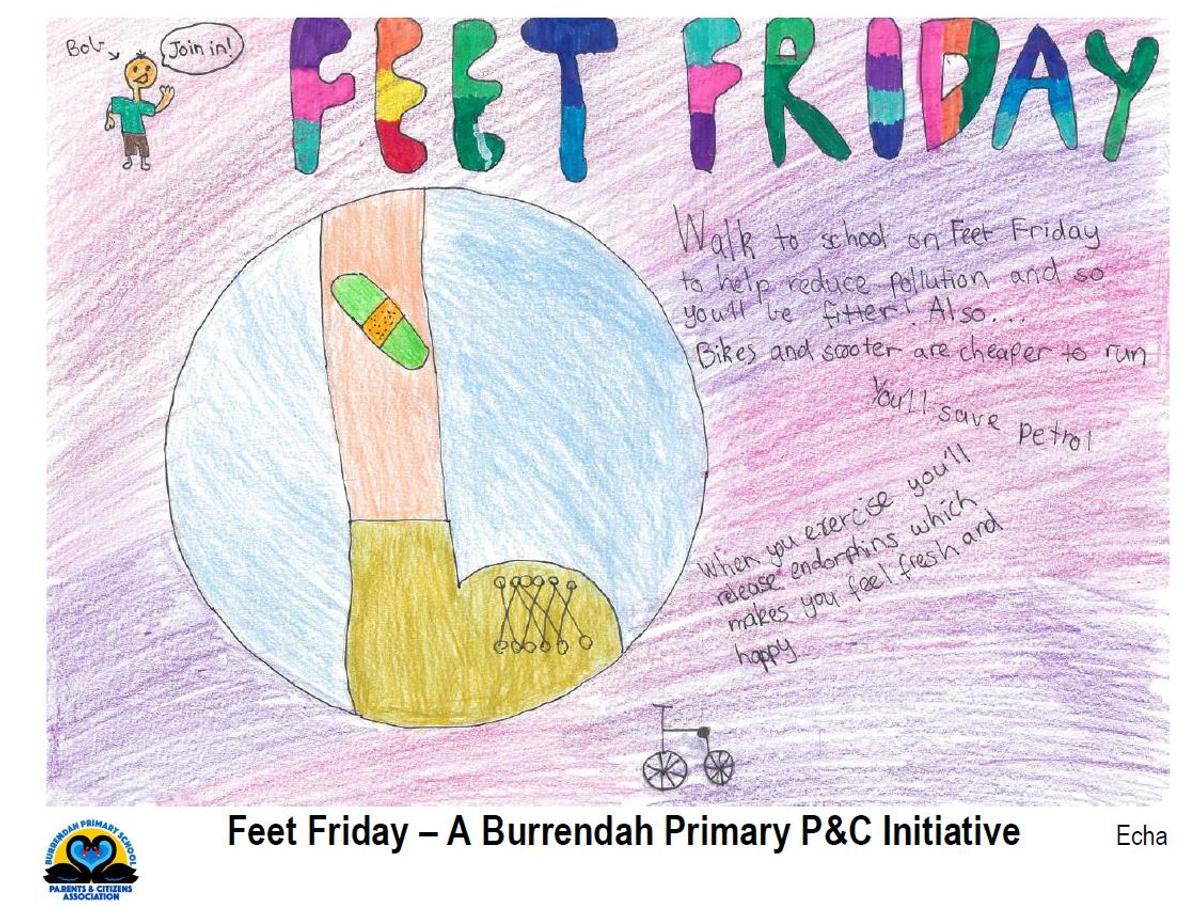 Bob
Join in!
FEET FRIDAY
Walk to school on Feet Friday
to help reduce pollution and so
you'll be fitter! Also...
Bikes and scooter are cheaper to run
You'll save petrol
When you exercise you'll
release endorphins which
makes you feel fresh and
happy
Feet Friday – A Burrendah Primary P&C Initiative
Echa
BURRENDAH PRIMARY SCHOOL
PARENTS & CITIZENS
ASSOCIATION